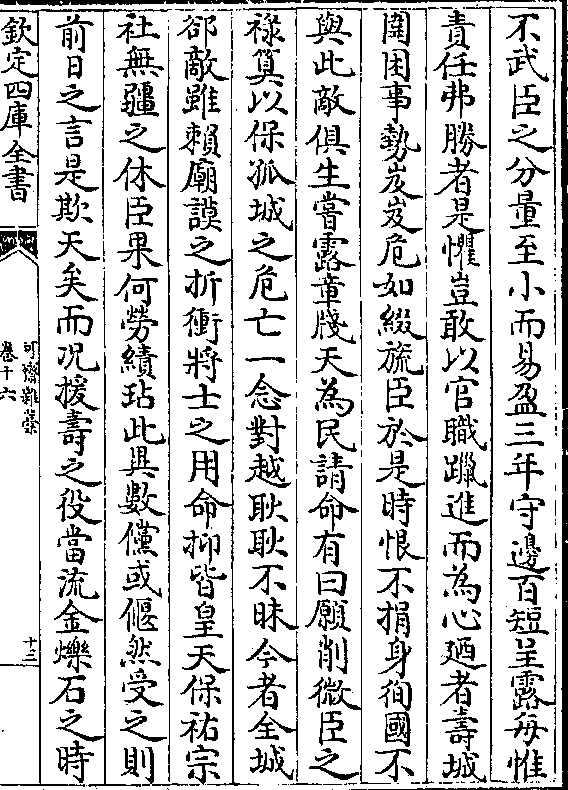 不武臣之分量至小而易盈三年守邊百短呈露每惟
責任弗勝者是懼豈敢以官職躐進而為心廼者壽城
圍困事勢岌岌危如綴旒臣於是時恨不捐身徇國不
與此敵俱生嘗露章牋天為民請命有曰願削微臣之
祿算以保孤城之危亡一念對越耿耿不昧今者全城
郤敵雖賴廟謨之折衝將士之用命抑皆皇天保祐宗
社無疆之休臣果何勞績玷此異數儻或偃然受之則
前日之言是欺天矣而况援壽之役當流金爍石之時
欽定四庫全書
可齋雜藁
卷十六
十三